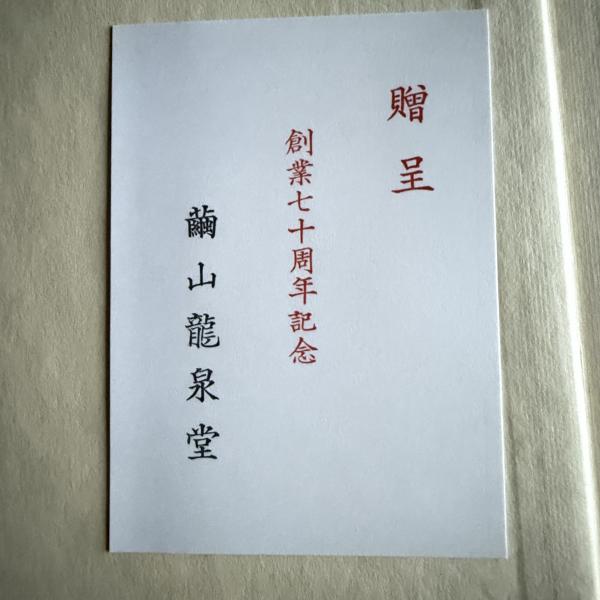 贈呈
創業七十周年記念
繭山龍泉堂